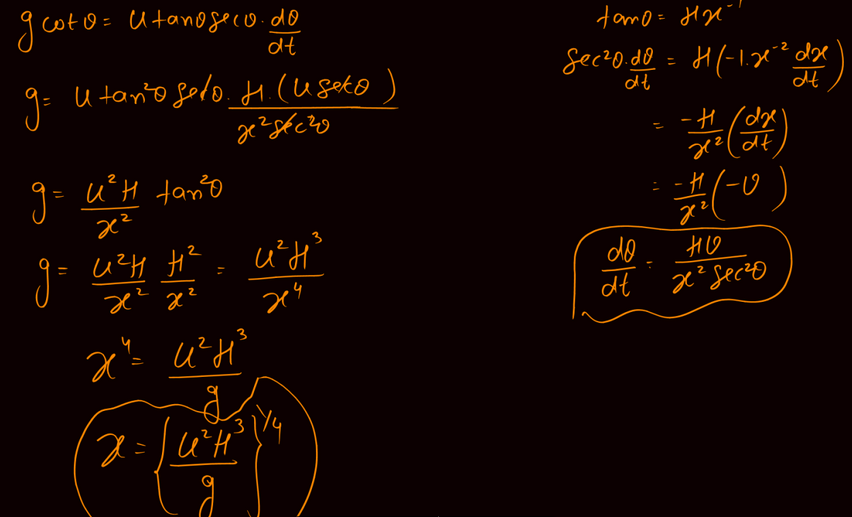 g cotθ = u tanθ secθ · dθ/dt
g = u tan²θ secθ · H · (u secθ) / x² sec²θ
g = u²H/x² tan²θ
g = u²H/x² H²/x² = u²H³/x⁴
x⁴ = u²H³/g
x = {u²H³/g}^1/4
tanθ = Hx⁻¹
sec²θ · dθ/dt = H(-1 · x⁻² dx/dt)
= -H/x² (dx/dt)
= -H/x² (-v)
dθ/dt = Hv/x² sec²θ